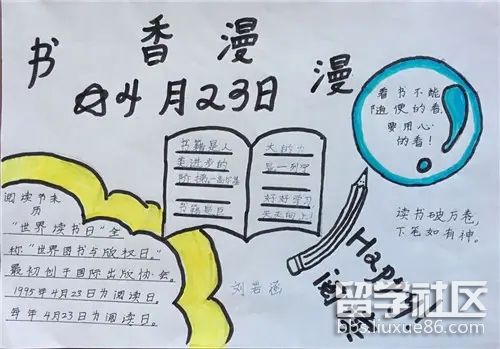 书香漫漫
4月23日
看书不能
随便的看,
要用心
的看!
书籍是人
类进步的
阶梯—高尔基
书籍是巨
大的力
量—列宁
好好学习
天天向上
读书破万卷,
下笔如有神。
阅读书来
历
"世界读书日"全
称"世界图书与版权日。"
最初创于国际出版协会。
1995年4月23日为阅读日。
每年4月23日为阅读日。
刘若涵
Happy
阅读
留学社区
bbs.liuxue86.com